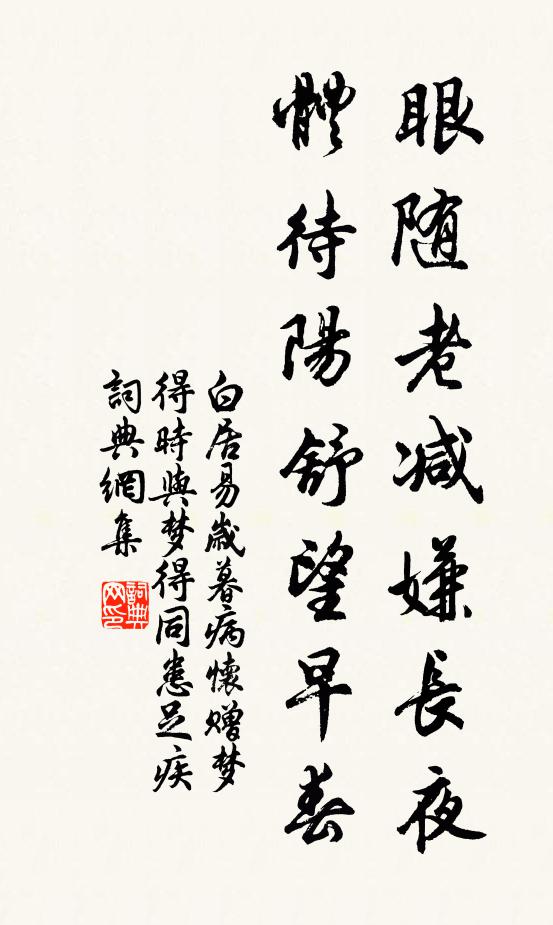 眼随老减嫌長夜
體待陽舒望早春
白居易歲暮病懷贈梦
得時與梦得同患足疾
詞典網集
詞典
网印